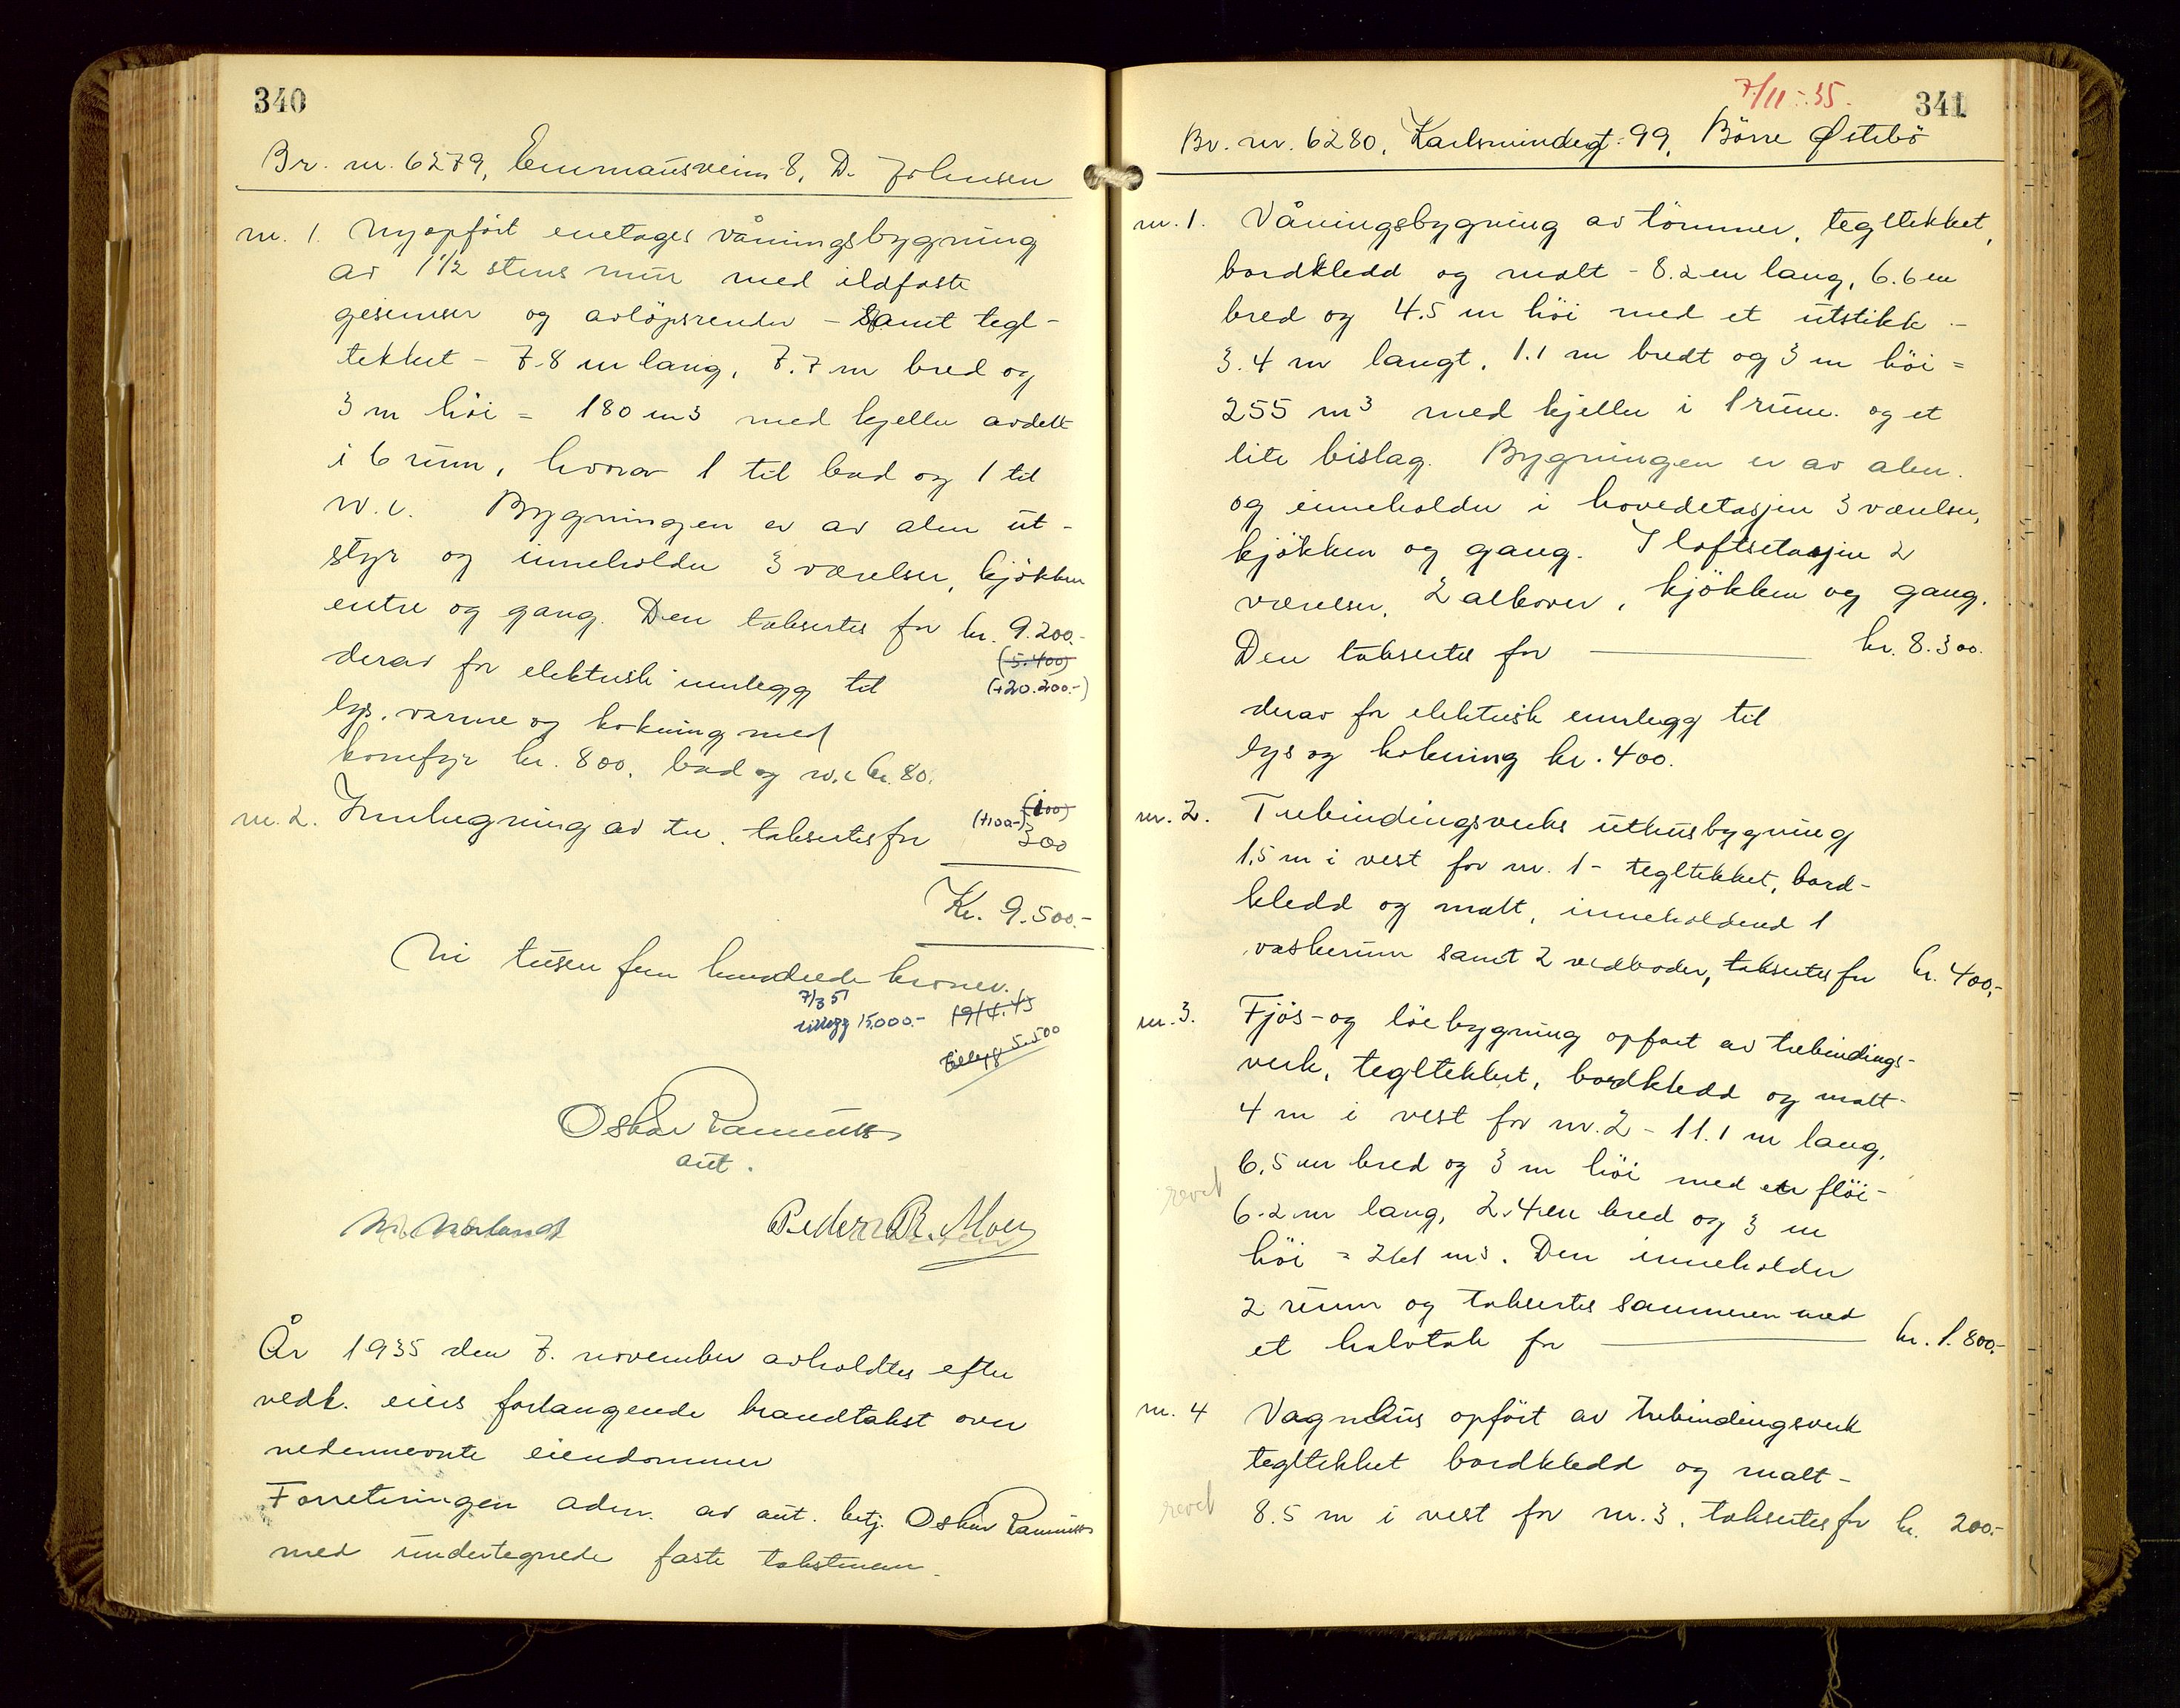 340
Br. nr. 6279, Emmausveien 8, D. Johnsen
nr. 1. Nyopført enetages våningsbygning
av 1 1/2 stens mur med ildfaste
gesimser og avløpsrender - samt tegl-
tekket - 7.8 m lang, 7.7 m bred og
3 m høi = 180 m3 med kjeller avdelt
i 6 rum, hvorav 1 til bad og 1 til
w.c. Bygningen er av alm ut-
styr og inneholder 3 værelser, kjøkken
entre og gang. Den takseres for kr. 9.200.-
(5.400)
derav for elektrisk innlegg til
(+20.200.-)
lys, varme og kokning med
komfyr kr. 800, bad og w.c kr. 80.
(100)
nr. 2. Innhegning av tre, takseres for (+100-) 300
Kr. 9.500.-
Ni tusen fem hundrede kroner.
7/3 51
tillegg 15.000.- 19/4.43
tillegg 5.500
Oskar
aut.
Peder R. Moen
År 1935 den 7. november avholdtes efter
vedk. eiers forlangende brandtakst over
nedennevnte eiendommer
Forretningen adm. av aut. betj. Oskar
med undertegnede faste takstmenn.
7/11-35.
341
Br. nr. 6280, Karlsmindegt. 99, Børre Østebø
nr. 1. Våningsbygning av tømmer, tegltekket,
bordkledd og malt - 8.2 m lang, 6.6 m
bred og 4.5 m høi med et utstikk -
3.4 m langt, 1.1 m bredt og 3 m høi =
255 m3 med kjeller i 1 rum. og et
lite bislag. Bygningen er av alm.
og inneholder i hovedetasjen 3 værelser,
kjøkken og gang. I loftsetasjen 2
værelser, 2 alkover, kjøkken og gang.
Den takseres for kr. 8.300.
derav for elektrisk innlegg til
lys og kokning kr. 400.
nr. 2. Trebindingsverks uthusbygning
1,5 m i vest for nr. 1 - tegltekket, bord-
kledd og malt, inneholdend 1
vaskerum samt 2 vedboder, takseres for kr. 400,-
nr. 3. Fjøs- og løebygning opført av trebindings-
verk, tegltekket, bordkledd og malt-
4 m i vest for nr. 2 - 11.1 m lang,
6,5 m bred og 3 m høi med en fløi-
revet
6.2 m lang, 2.4 m bred og 3 m
høi = 261 m3. Den inneholder
2 rum og takseres sammen med
et halvtak for kr. 1.800.-
nr. 4 Vagnhus opført av trebindingsverk
tegltekket bordkledd og malt -
revet
8.5 m i vest for nr. 3, takseres for kr. 200.-